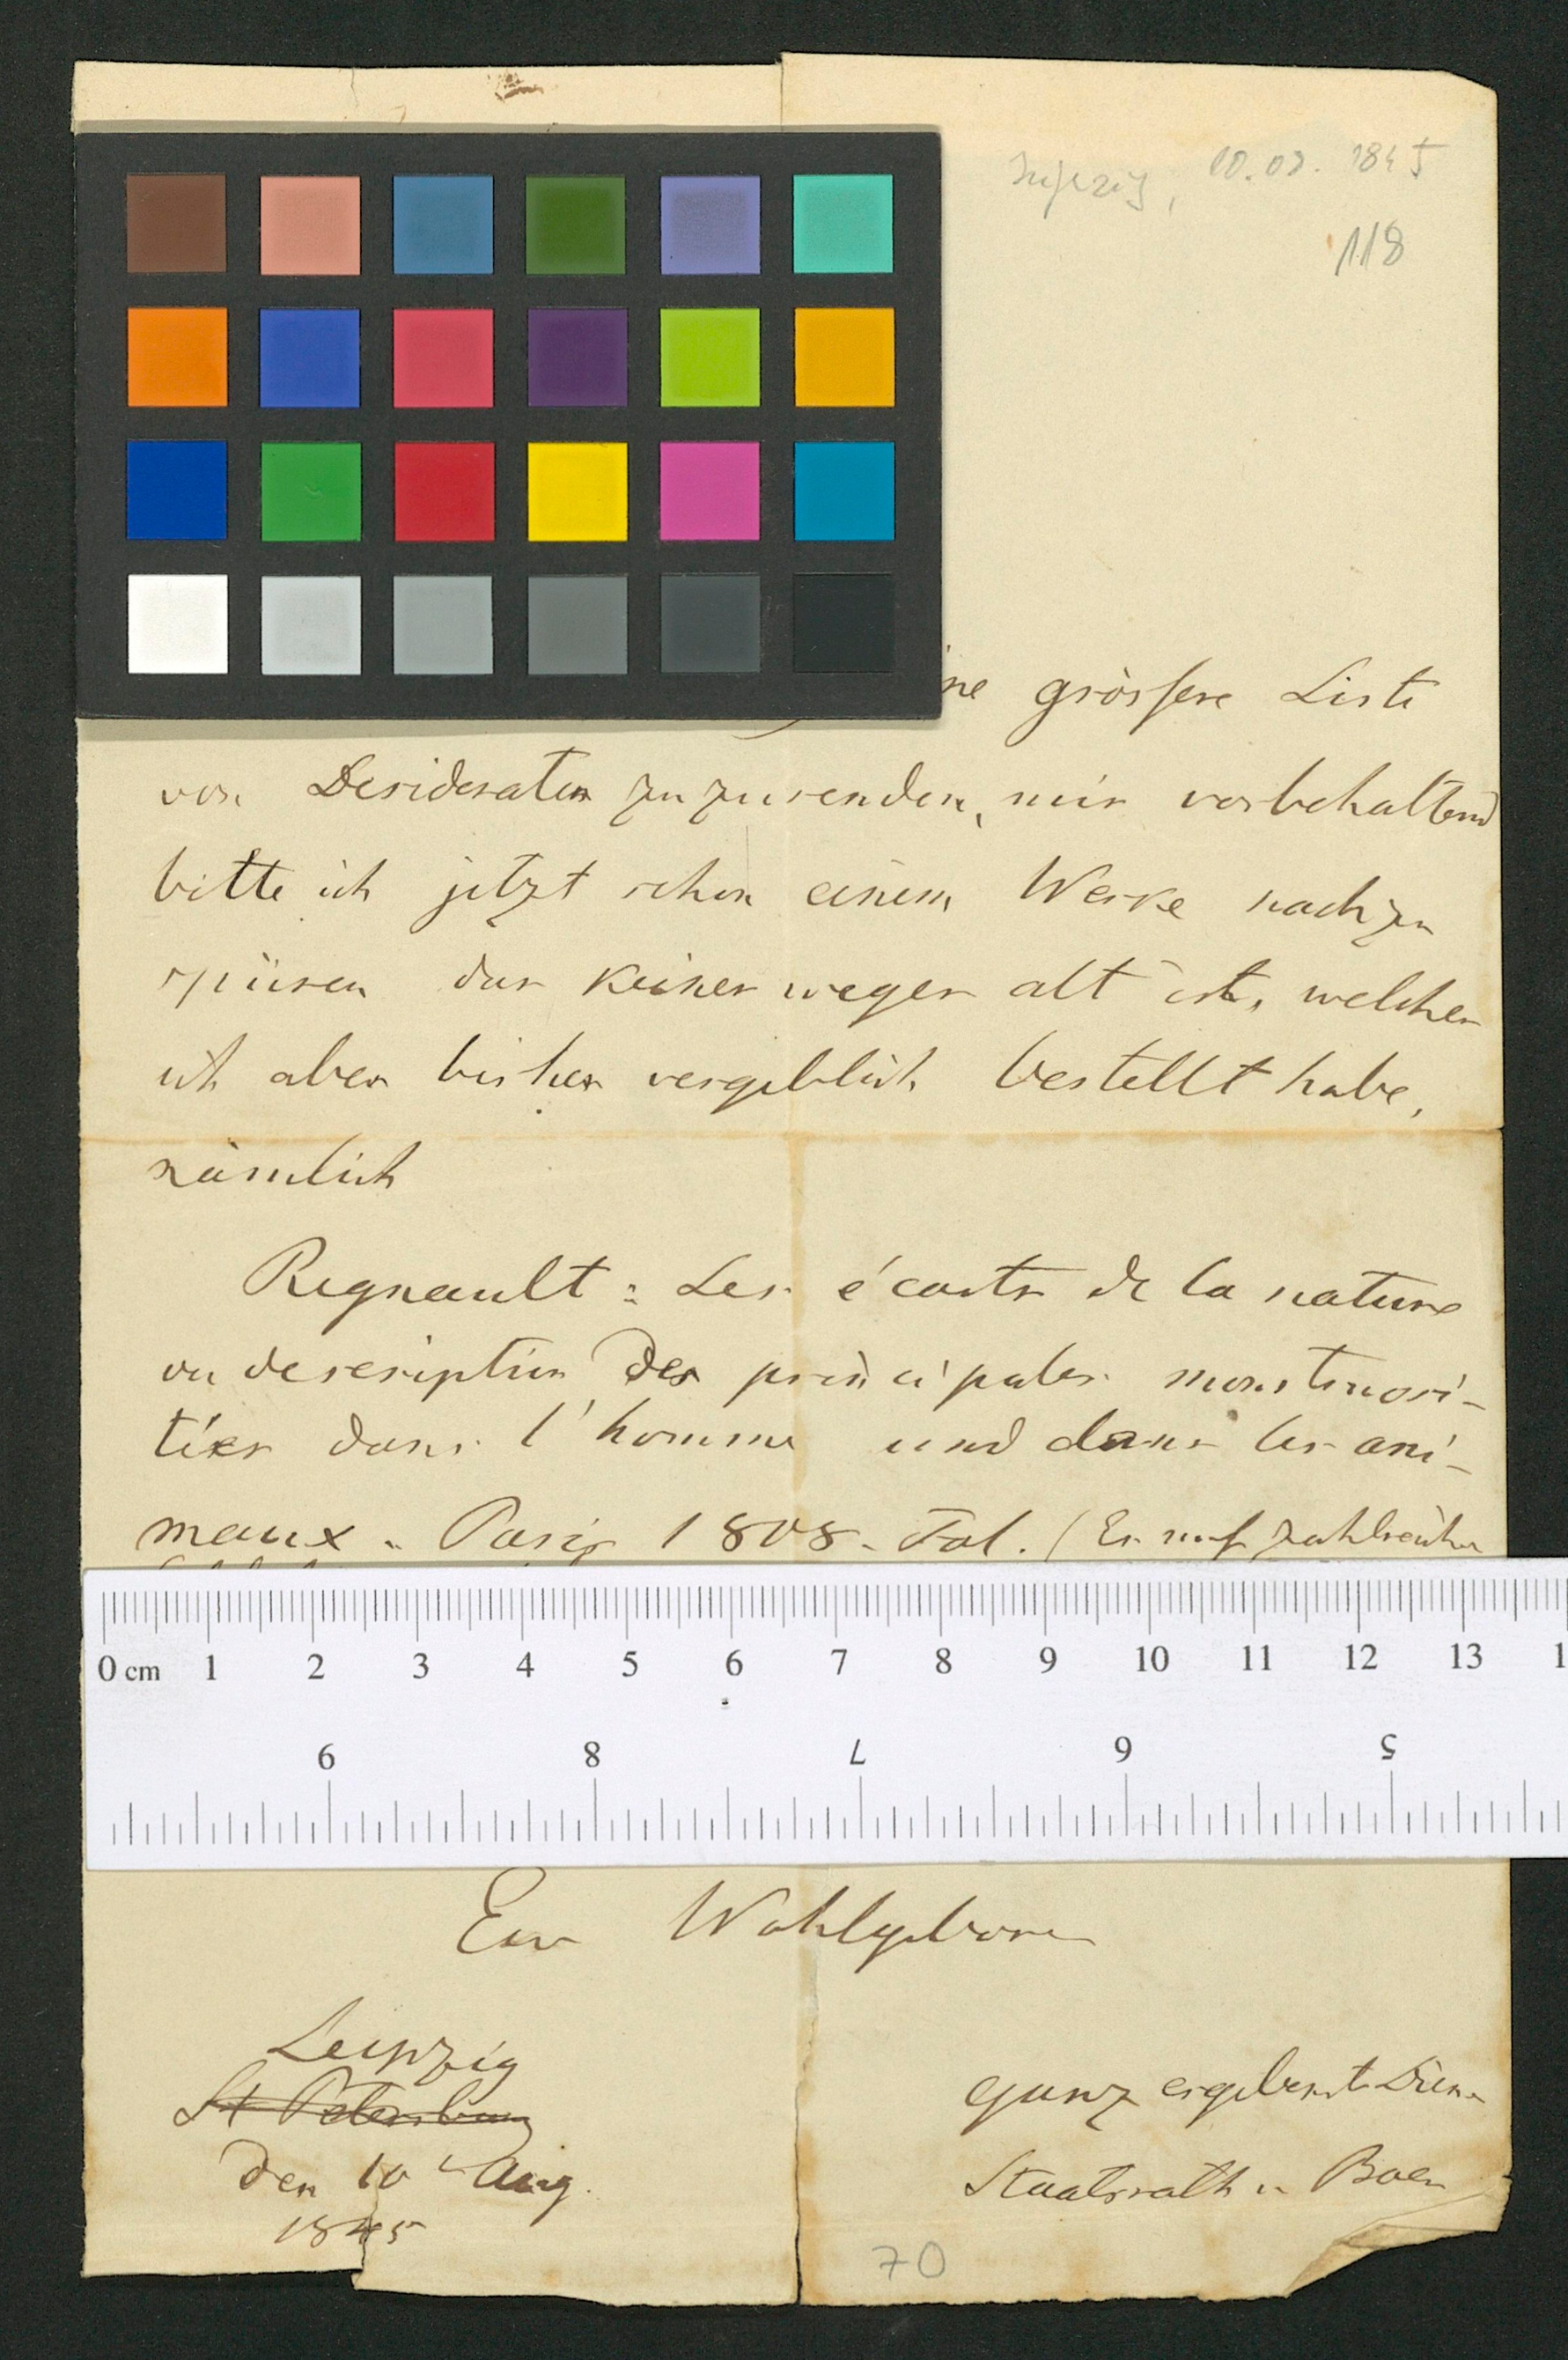 Leipzig, 10.08.1845
118
ne grössere Liste
von Desideraten zuzusenden, mir vorbehaltend
bitte ich jetzt schon einem Werke nachzu
spüren das keinesweges alt ist, welches
ich aber bisher vergeblich bestellt habe,
nämlich
Regnault: Les écarts de la nature
ou desescription des principales monstruosi-
tées dans l'homme und dans les ani-
maux. Paris 1808. Fol. (Es muß zahlreiche
0 cm 1 2 3 4 5 6 7 8 9 10 11 12 13 1
9 8 7 6 5
Euer Wohlgeboren
Leipzig
St Petersburg
den 10t Aug.
1845
ganz ergebenster Diener
Staatsrath v. Baer
70